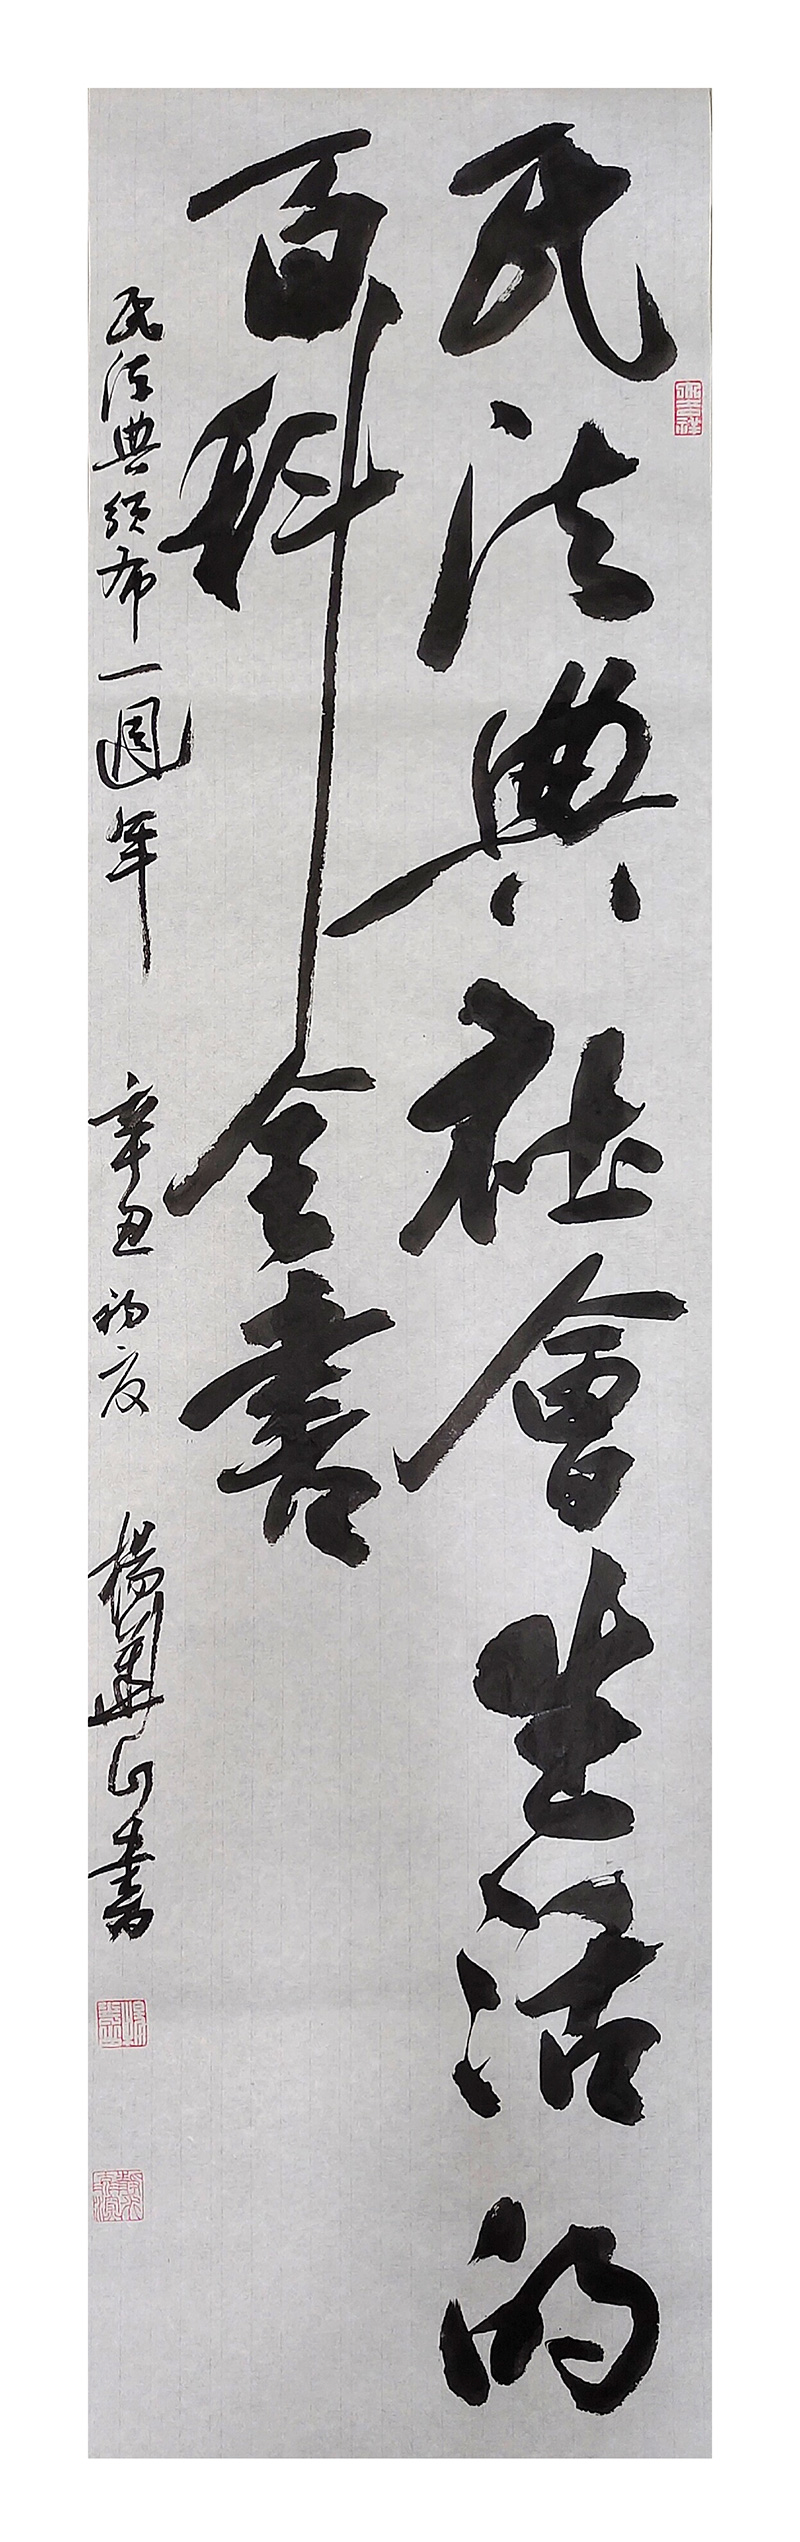 民法典社會生活的
百科全書
民法典頒布一週年
辛丑初夏
楊華山書